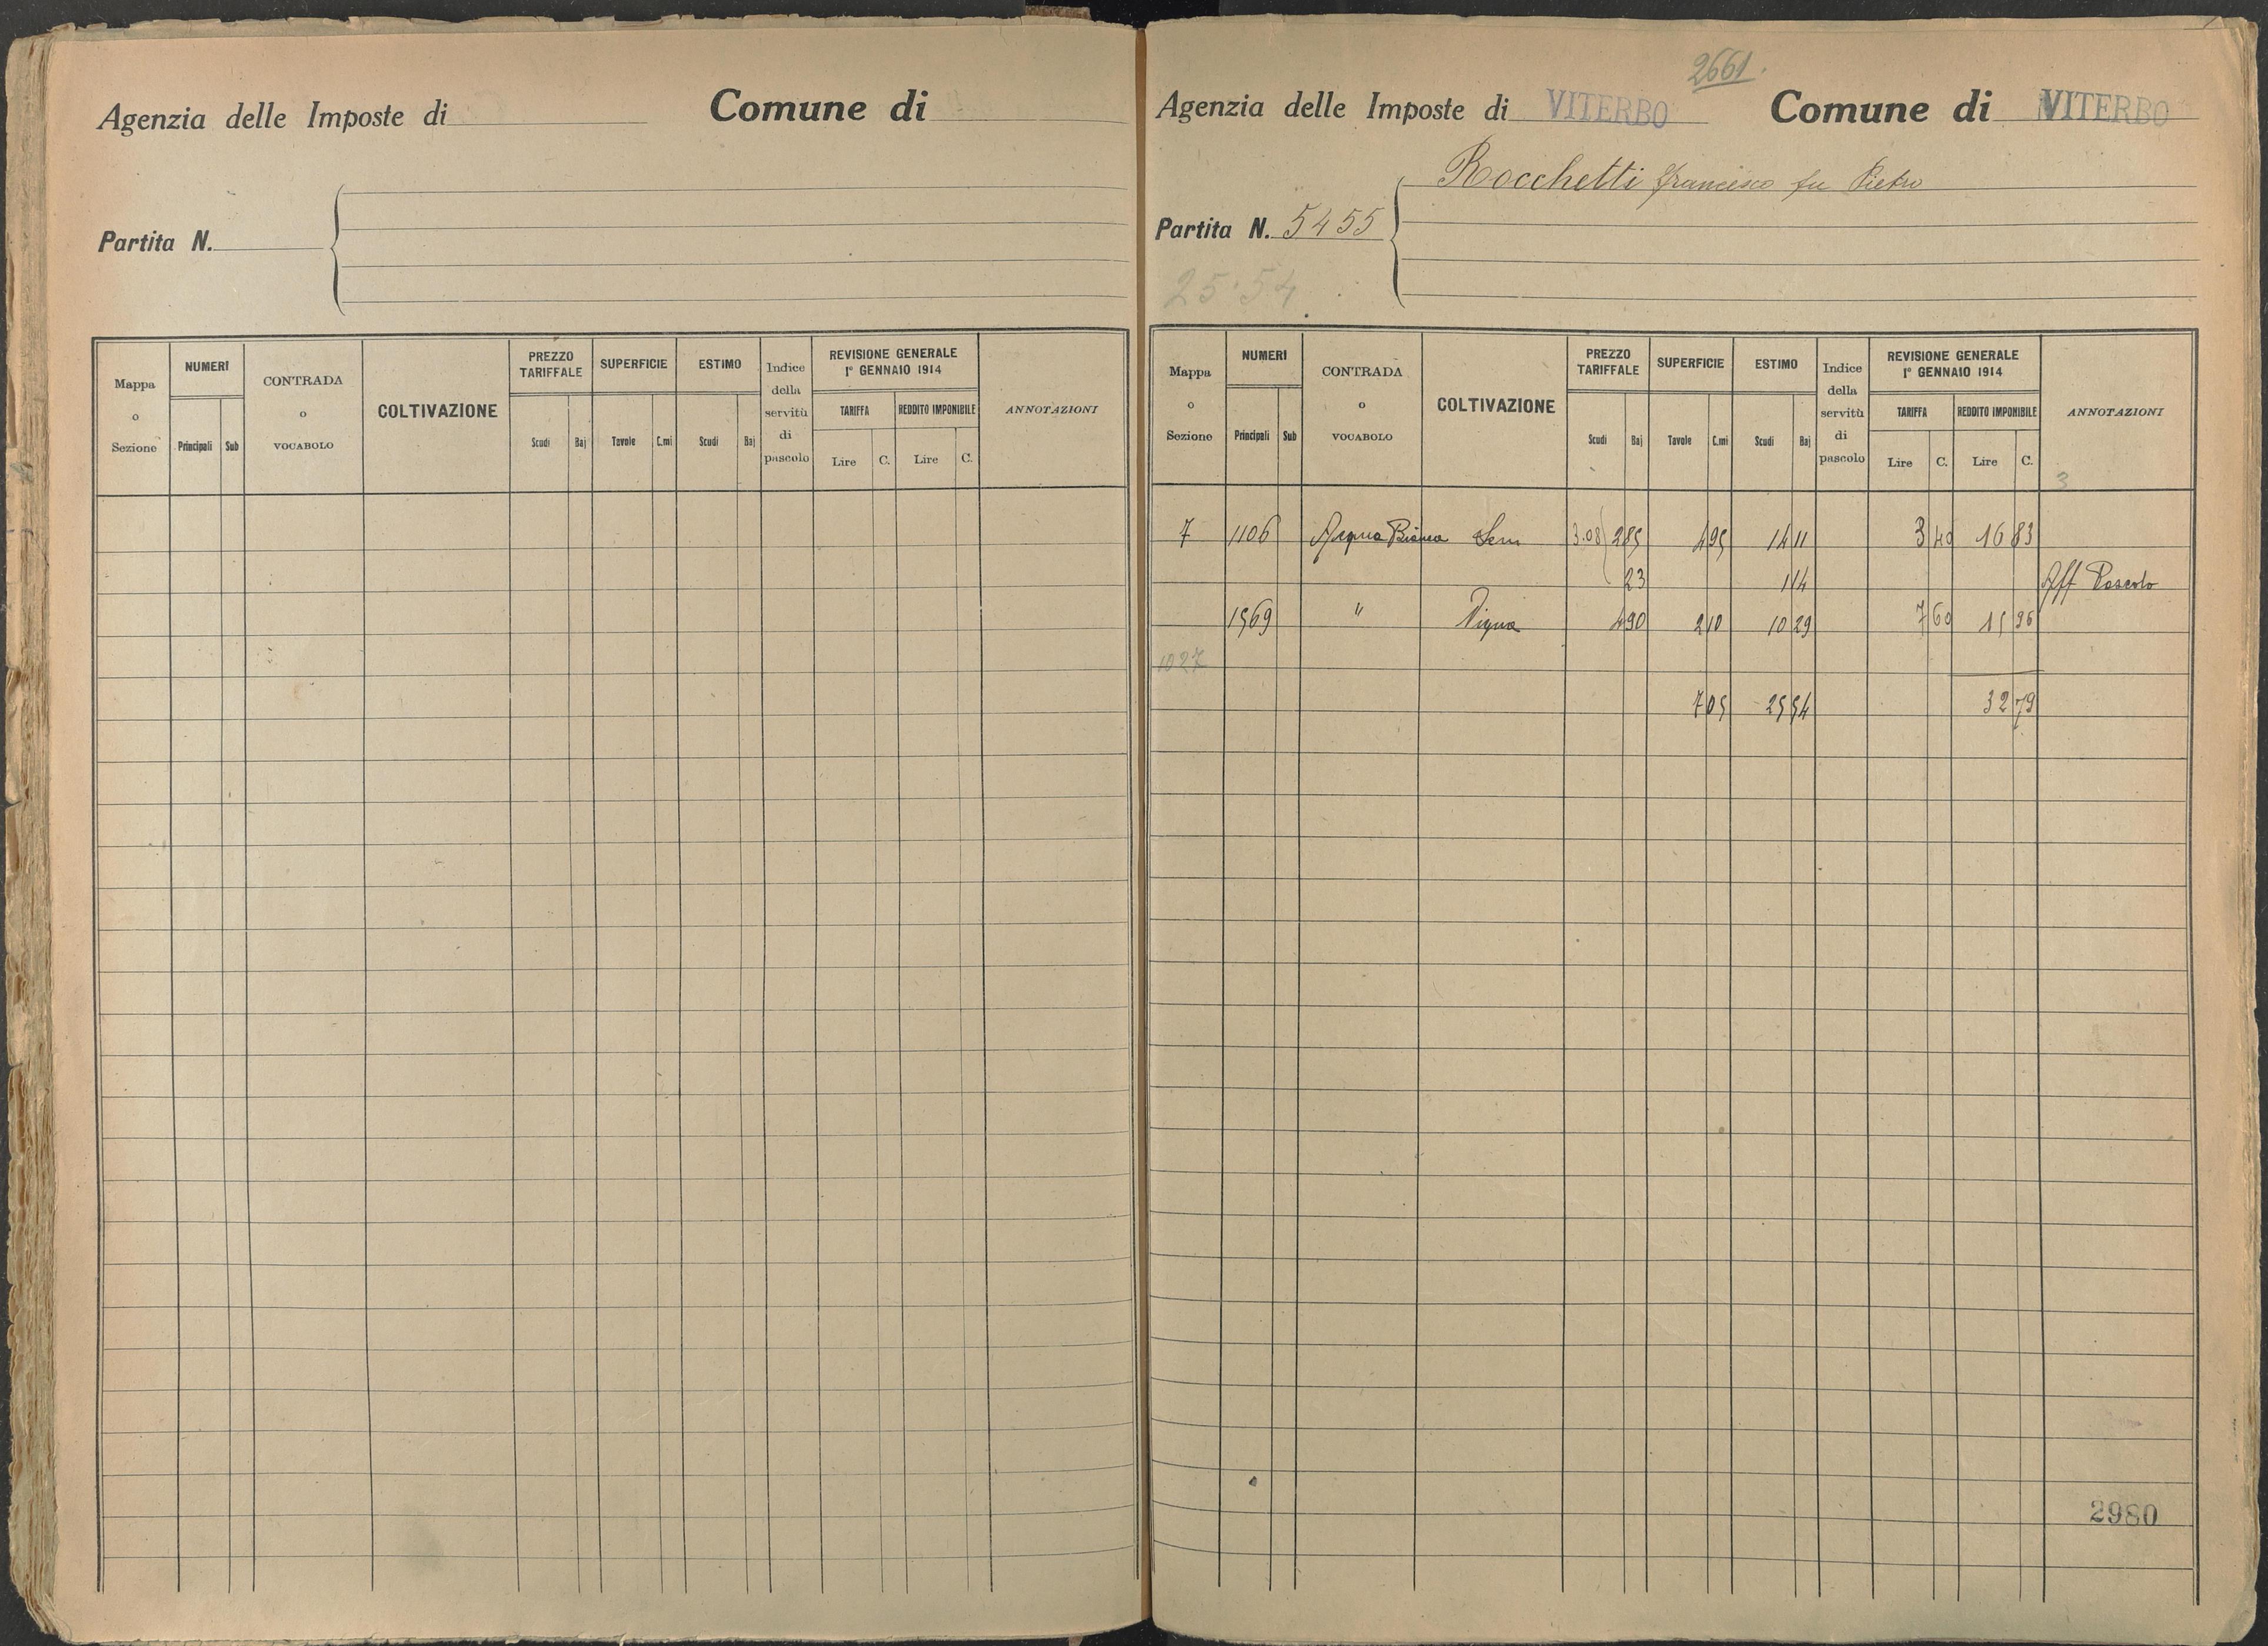 Agenzia delle Imposte di Comune di
Partita N.
Mappa o Sezione NUMERI Principali Sub CONTRADA o VOCABOLO COLTIVAZIONE PREZZO TARIFFALE Scudi Baj SUPERFICIE Tavole C.mi ESTIMO Scudi Baj Indice della servitù di pascolo REVISIONE GENERALE 1° GENNAIO 1914 TARIFFA Lire C. REDDITO IMPONIBILE Lire C. ANNOTAZIONI
2661.
Agenzia delle Imposte di VITERBO Comune di VITERBO
Rocchetti Francesco fu Pietro
Partita N. 5455
25.54
Mappa o Sezione NUMERI Principali Sub CONTRADA o VOCABOLO COLTIVAZIONE PREZZO TARIFFALE Scudi Baj SUPERFICIE Tavole C.mi ESTIMO Scudi Baj Indice della servitù di pascolo REVISIONE GENERALE 1° GENNAIO 1914 TARIFFA Lire C. REDDITO IMPONIBILE Lire C. ANNOTAZIONI
3
7 1106 Acqua Bianca Sem 3.08 2 85 4 95 14 11 3 40 16 83
23 1 14 Aff Pascolo
1569 " Vigna 4 90 2 10 10 29 7 60 15 96
1027
7 05 25 54 32 79
2980